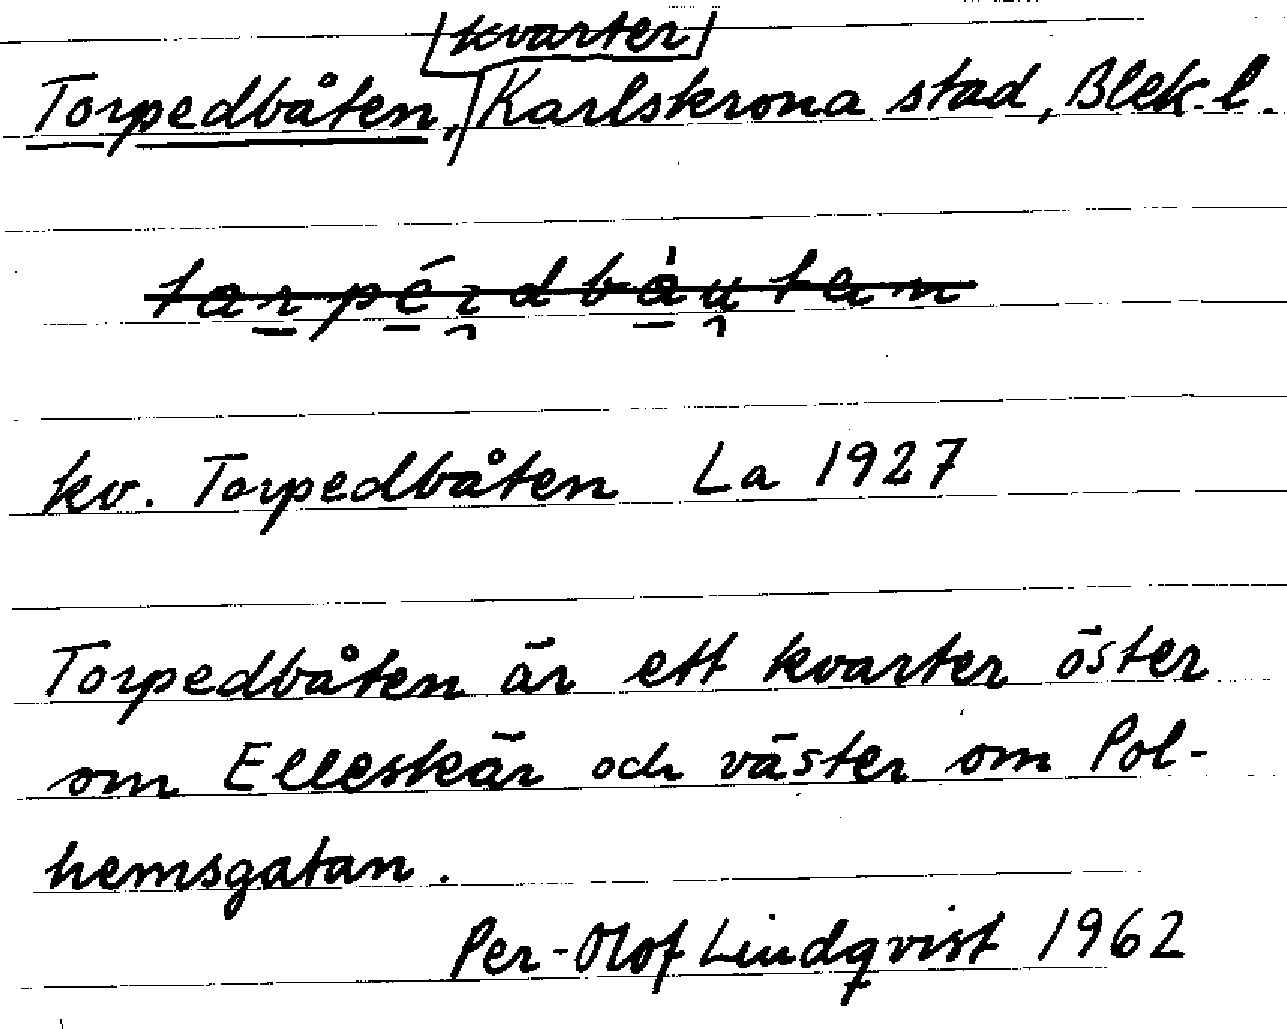 kvarter
Torpedbåten, Karlskrona stad, Blek. l.
kv. Torpedbåten La 1927
Torpedbåten är ett kvarter öster
om Elleskär och väster om Pol-
hemsgatan.
Per-Olof Lindqvist 1962